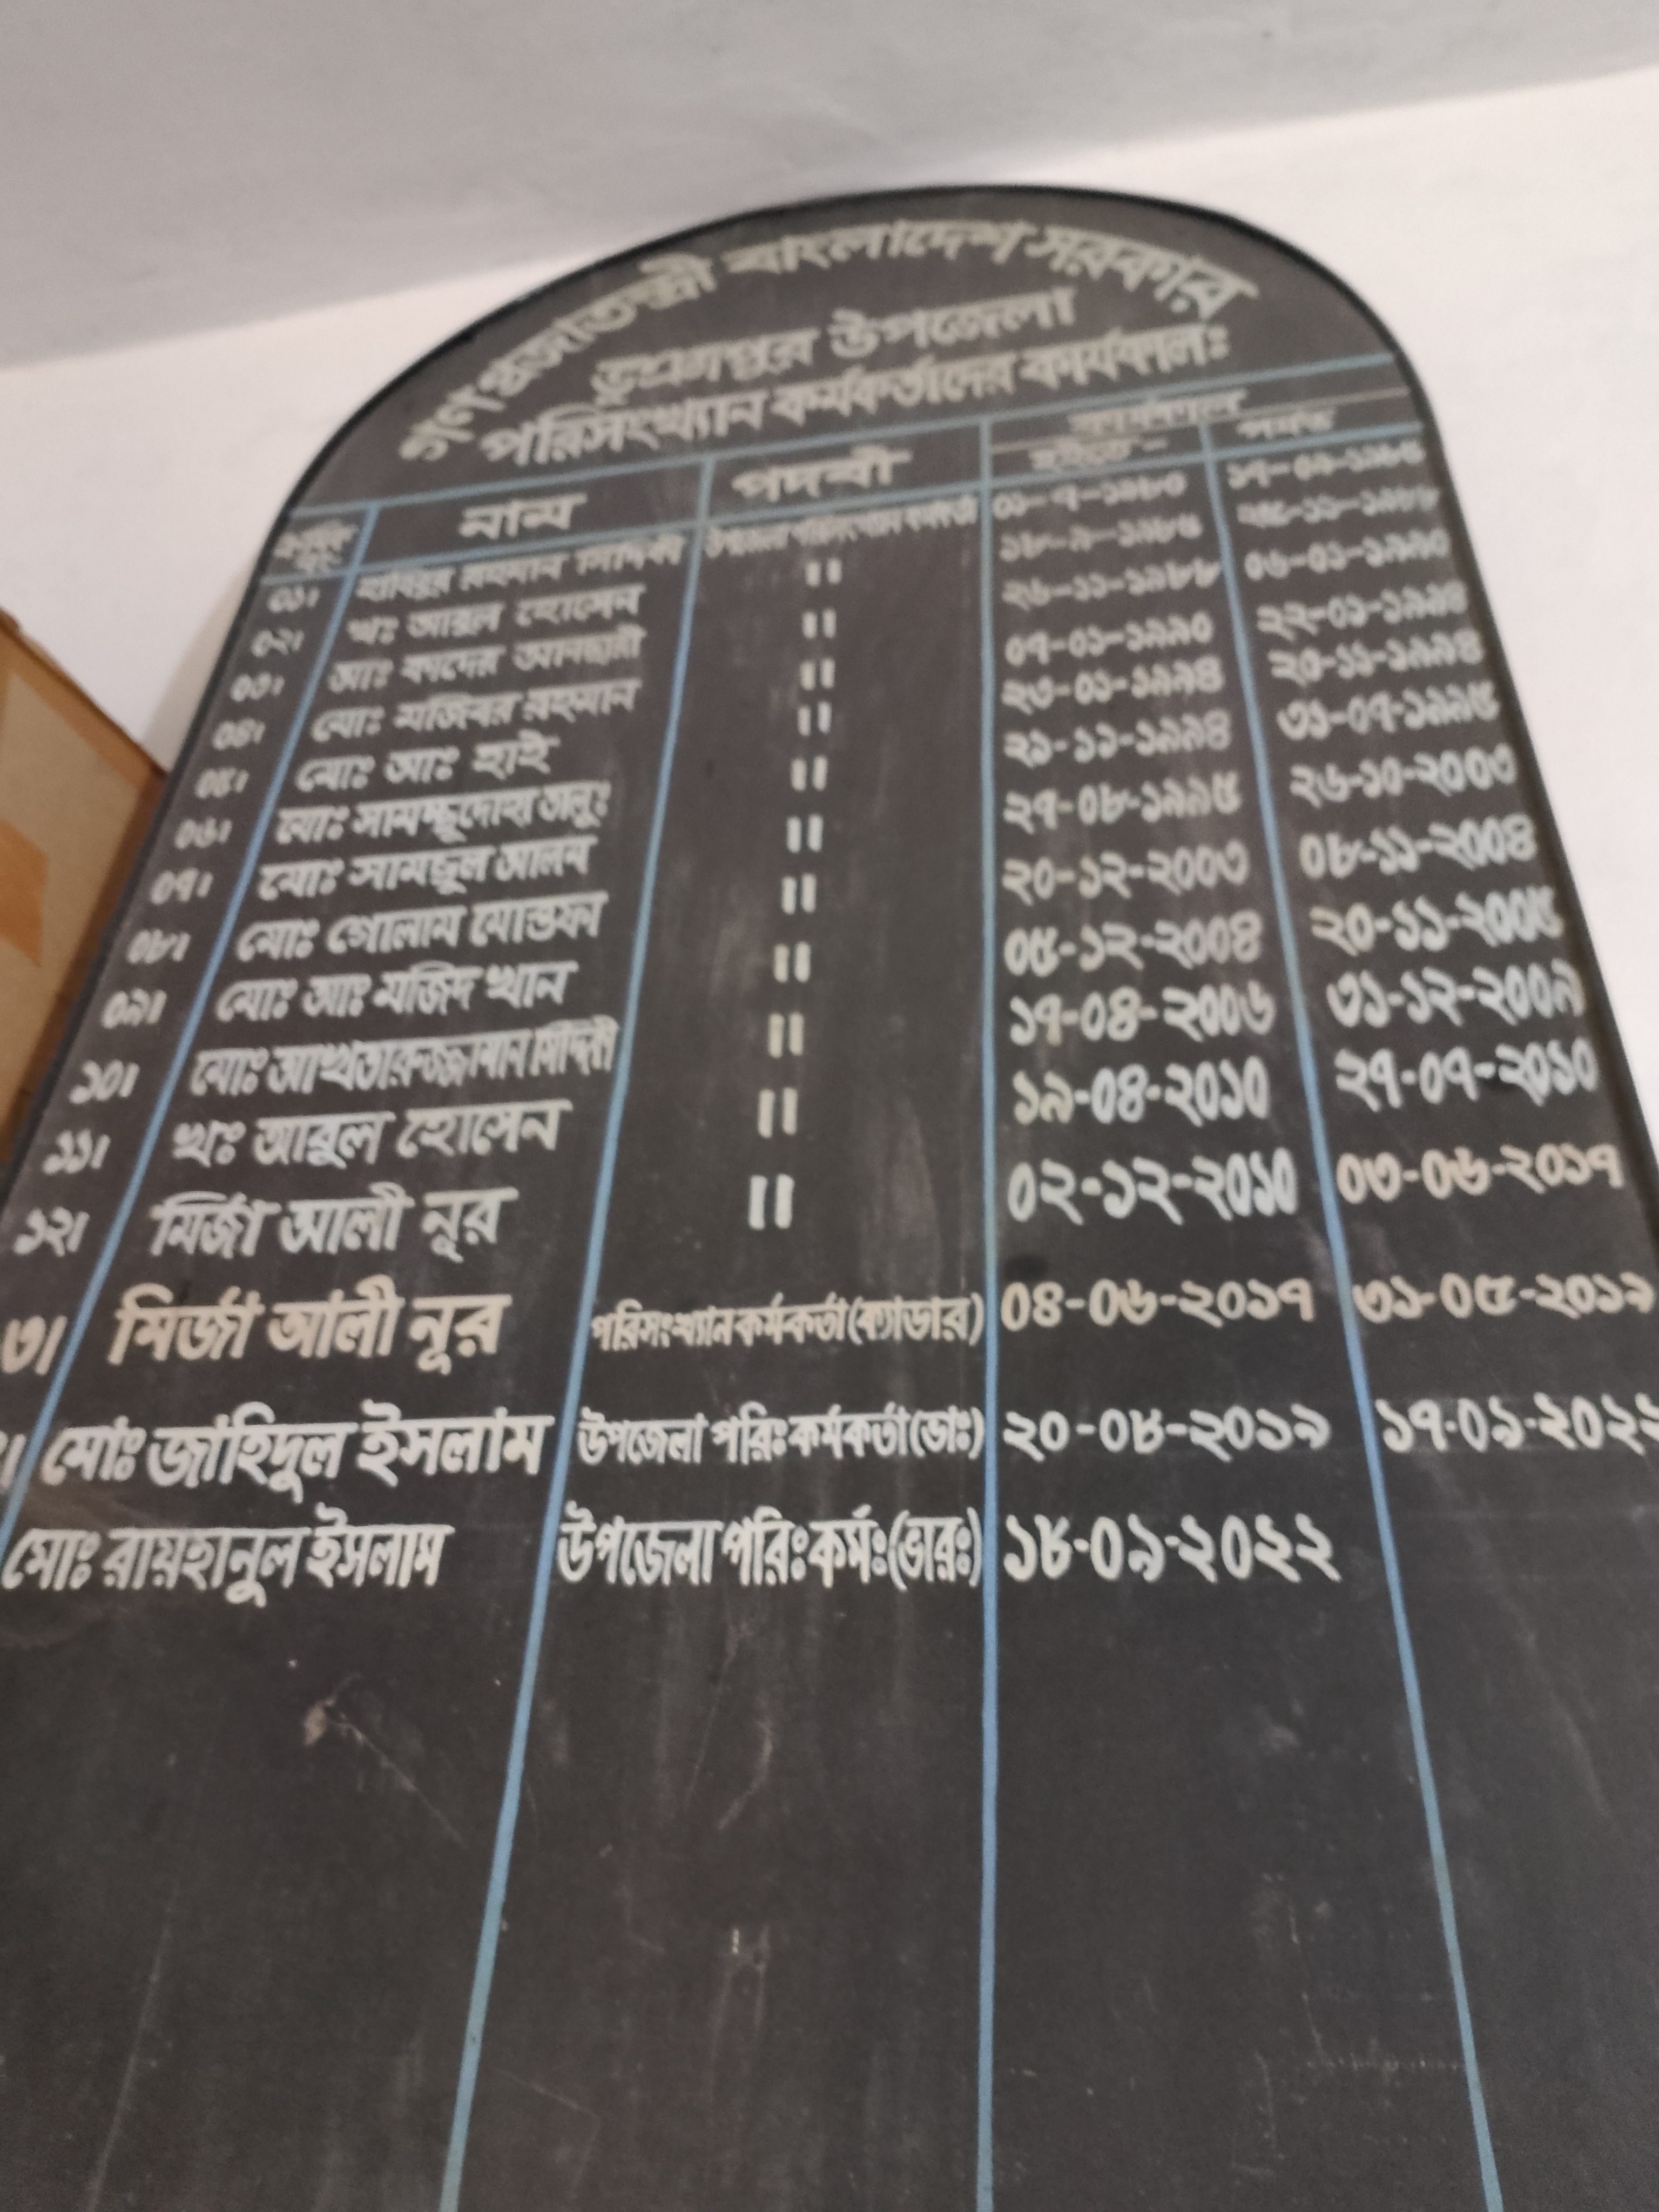 গণ প্রজাতন্ত্রী বাংলাদেশ সরকার
ভূঞাপুর উপজেলা
পরিসংখ্যান কর্মকর্তাদের কার্যকাল:
নাম পদবী কার্যকাল
হইতে - পর্যন্ত
০১। রহমান উপজেলা পরিসংখ্যান কর্মকর্তা
০২। খঃ আবুল হোসেন "
০৩। আঃ কাদের আনছারী " ২৬-১১-১৯৮৮ ০৬-০১-১৯৯০
০৪। মোঃ মজিবর রহমান " ০৭-০১-১৯৯০ ২২-০১-১৯৯৪
০৫। মোঃ আঃ হাই " ২৩-০১-১৯৯৪ ২০-১১-১৯৯৪
০৬। মোঃ সামছুদ্দোহা তালুঃ " ২১-১১-১৯৯৪ ৩১-০৭-১৯৯৫
০৭। মোঃ সামছুল আলম " ২৭-০৮-১৯৯৫ ২৬-১০-২০০৩
০৮। মোঃ গোলাম মোস্তফা " ২০-১২-২০০৩ ০৮-১১-২০০৪
০৯। মোঃ আঃ মজিদ খান " ০৫-১২-২০০৪ ২০-১১-২০০৫
১০। মোঃ আখতারুজ্জামান সিদ্দিকী " ১৭-০৪-২০০৬ ৩১-১২-২০০৯
১১। খঃ আবুল হোসেন " ১৯-০৪-২০১০ ২৭-০৭-২০১০
১২। মির্জা আলী নূর " ০২-১২-২০১০ ০৩-০৬-২০১৭
৩। মির্জা আলী নূর পরিসংখ্যান কর্মকর্তা (ক্যাডার) ০৪-০৬-২০১৭ ৩১-০৫-২০১৯
মোঃ জাহিদুল ইসলাম উপজেলা পরিঃ কর্মকর্তা (ভাঃ) ২০-০৮-২০১৯ ১৭-০৯-২০২২
মোঃ রায়হানুল ইসলাম উপজেলা পরিঃ কর্মঃ (ভারঃ) ১৮-০৯-২০২২